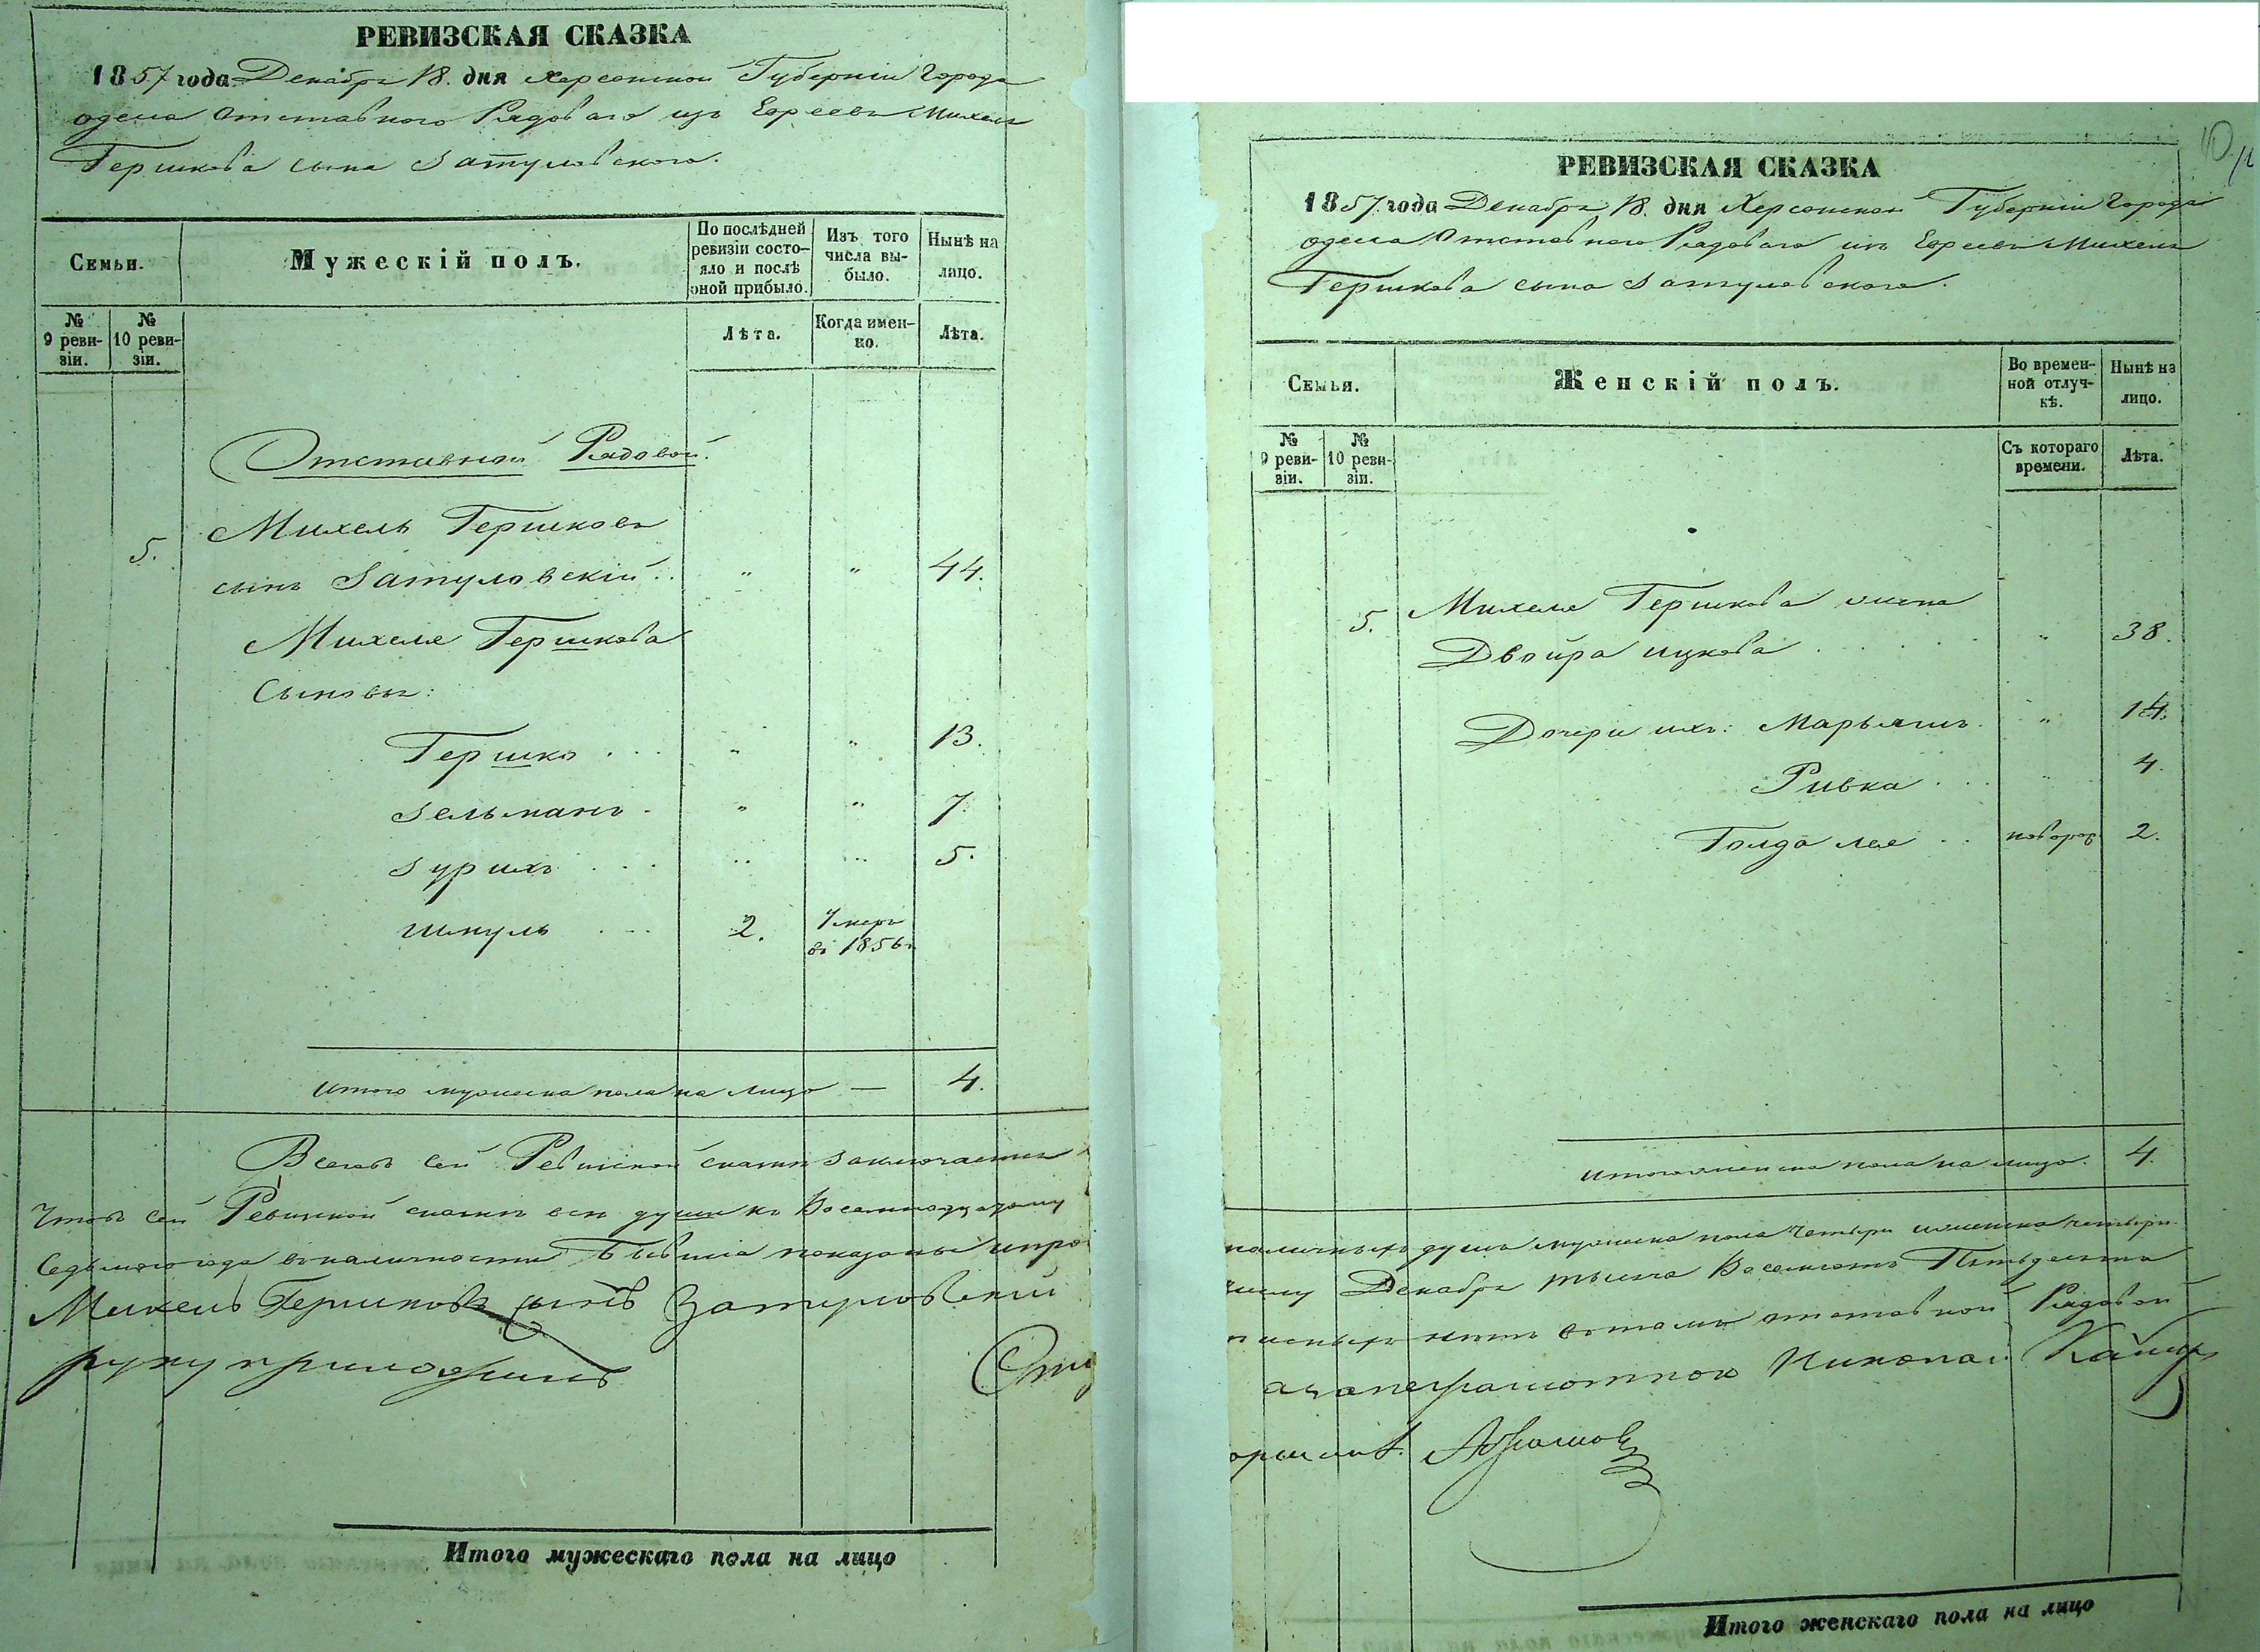 РЕВИЗСКАЯ СКАЗКА
1857 года Декабря 18. дня Херсонской Губерніи Города
Одесса Отставного Рядоваго изъ Евреевъ Михеля
Гершкова сына Затуловскаго.
Семьи.
Мужескій полъ.
По послѣдней ревизіи состояло и послѣ оной прибыло.
Изъ того числа выбыло.
Нынѣ на лицо.
№ 9 ревизіи.
№ 10 ревизіи.
Лѣта.
Когда именно.
Лѣта.
Отставной Рядовой.
Михель Гершковъ
5. сынъ Затуловскій . . " " 44.
Михеля Гершкова
Сыновья:
Гершко . . . " " 13.
Зельманъ . " " 7.
Зурихъ . . . " " 5.
Шмуль . . . 2. Умеръ въ 1856 г.
Итого мужеска пола на лицо — 4.
Всего въ сей Ревизской сказки заключается
Чтовъ сей Ревизской сказки все души къ Восемнадцатому
Седьмого года въ наличности бывшіа показаны и про
Михель Гершковъ сынъ Затуловский
руку приложилъ
Итого мужескаго пола на лицо
10.
РЕВИЗСКАЯ СКАЗКА
1857. года Декабря 18. дня Херсонской Губерніи Города
Одесса Отставного Рядоваго изъ Евреевъ Михеля
Гершкова сына Затуловскаго.
Семьи.
Женскій полъ.
Во временной отлучкѣ.
Нынѣ на лицо.
№ 9 ревизіи.
№ 10 ревизіи.
Съ котораго времени.
Лѣта.
5. Михеля Гершкова жена
Двойра Ицкова . . . . " 38.
Дочери ихъ: Марьямъ. " 14.
Ривка . . . " 4.
Голда Лея . . новорож. 2.
Итого женска пола на лицо. 4.
наличныхъ душъ мужеска пола четыри и женска четыри.
числу Декабря тысяча Восемьсотъ Пятьдесятъ
отставной Рядовой
неграмотного Николай
Абрамовъ
Итого женскаго пола на лицо